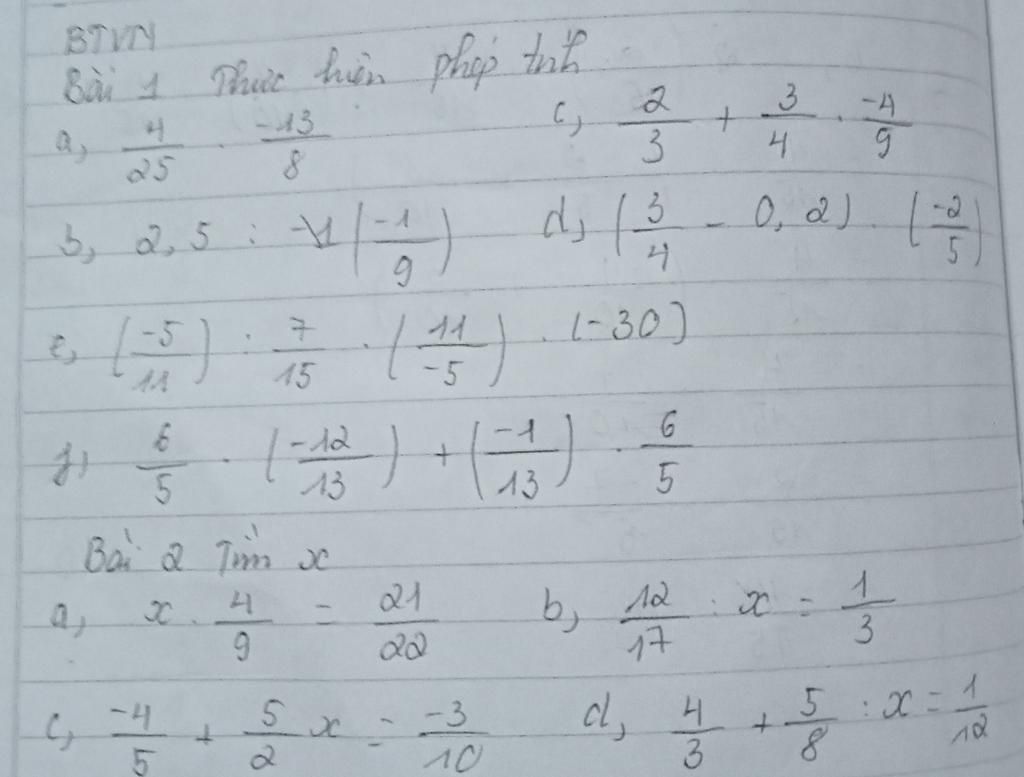 BTVN
Bài 1 Thực hiện phép tính
a, 4/25 . -13/8 c, 2/3 + 3/4 . -4/9
b, 2,5 : (-1/9) d, (3/4 - 0,2) . (-2/5)
e, (-5/11) : 7/15 . (11/-5) . (-30)
f, 6/5 . (-12/13) + (-1/13) . 6/5
Bài 2 Tìm x
a, x . 4/9 = 21/22 b, 12/17 : x = 1/3
c, -4/5 + 5/2 x = -3/10 d, 4/3 + 5/8 : x = 1/12